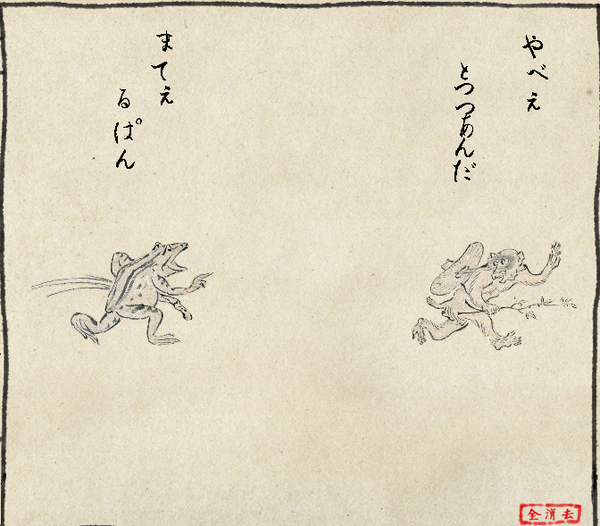 やべぇ
とっつあんだ
まてぇ
るぱん
全消去